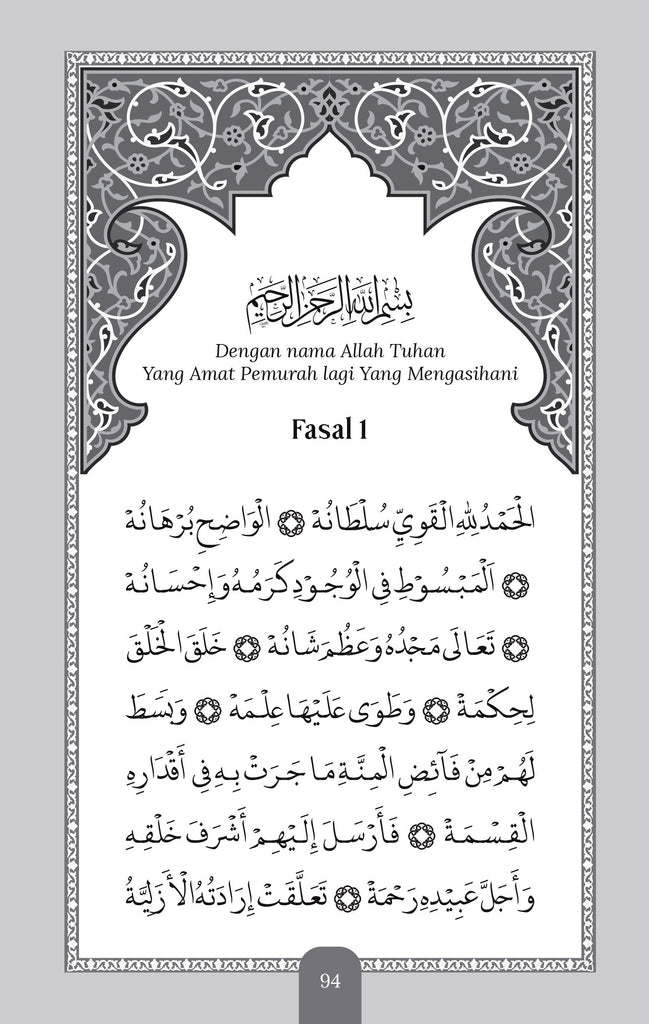 بِسْمِ اللهِ الرَّحْمٰنِ الرَّحِيْمِ
Dengan nama Allah Tuhan
Yang Amat Pemurah lagi Yang Mengasihani
Fasal 1
الْحَمْدُ لِلّٰهِ الْقَوِيِّ سُلْطَانُهْ ۞ الْوَاضِحِ بُرْهَانُهْ
۞ اَلْمَبْسُوْطِ فِى الْوُجُوْدِ كَرَمُهُ وَإِحْسَانُهْ
۞ تَعَالَى مَجْدُهُ وَعَظُمَ شَانُهْ ۞ خَلَقَ الْخَلْقَ
لِحِكْمَةْ ۞ وَطَوَى عَلَيْهَا عِلْمَهْ ۞ وَبَسَطَ
لَهُمْ مِنْ فَآئِضِ الْمِنَّةِ مَا جَرَتْ بِهِ فِى أَقْدَارِهِ
الْقِسْمَةْ ۞ فَأَرْسَلَ إِلَيْهِمْ أَشْرَفَ خَلْقِهِ
وَأَجَلَّ عَبِيْدِهِ رَحْمَةْ ۞ تَعَلَّقَتْ إِرَادَتُهُ الْأَزَلِيَّةُ
94